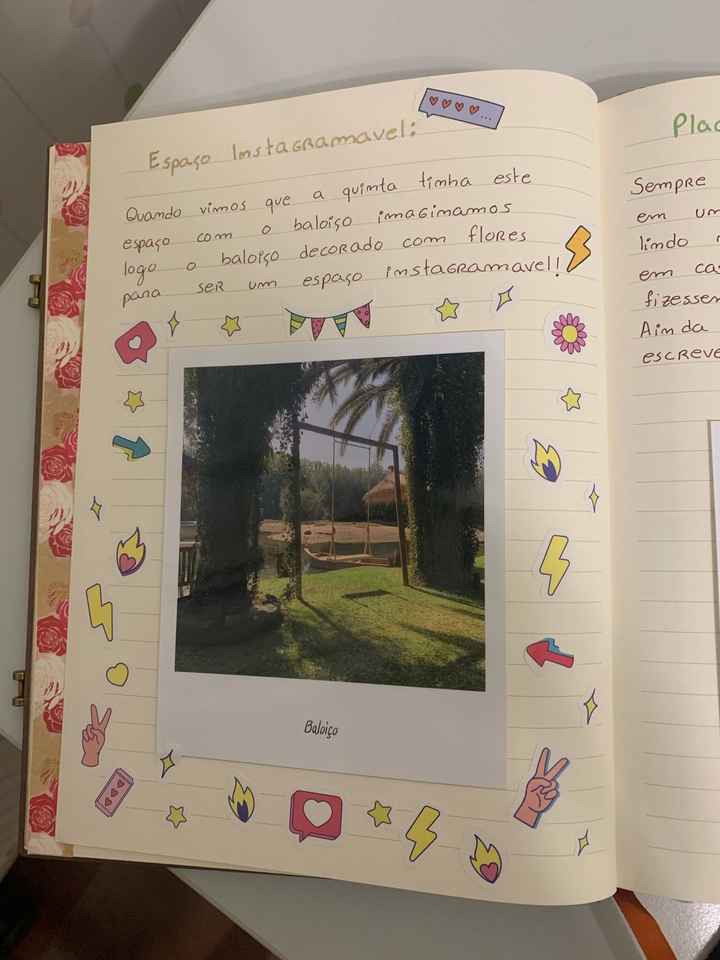 Espaço Instagramavel:
Quando vimos que a quinta tinha este
espaço com o baloiço imaginamos
logo o baloiço decorado com flores
para ser um espaço instagramavel!
Baloiço
Sempre
em
lindo
em
Ainda